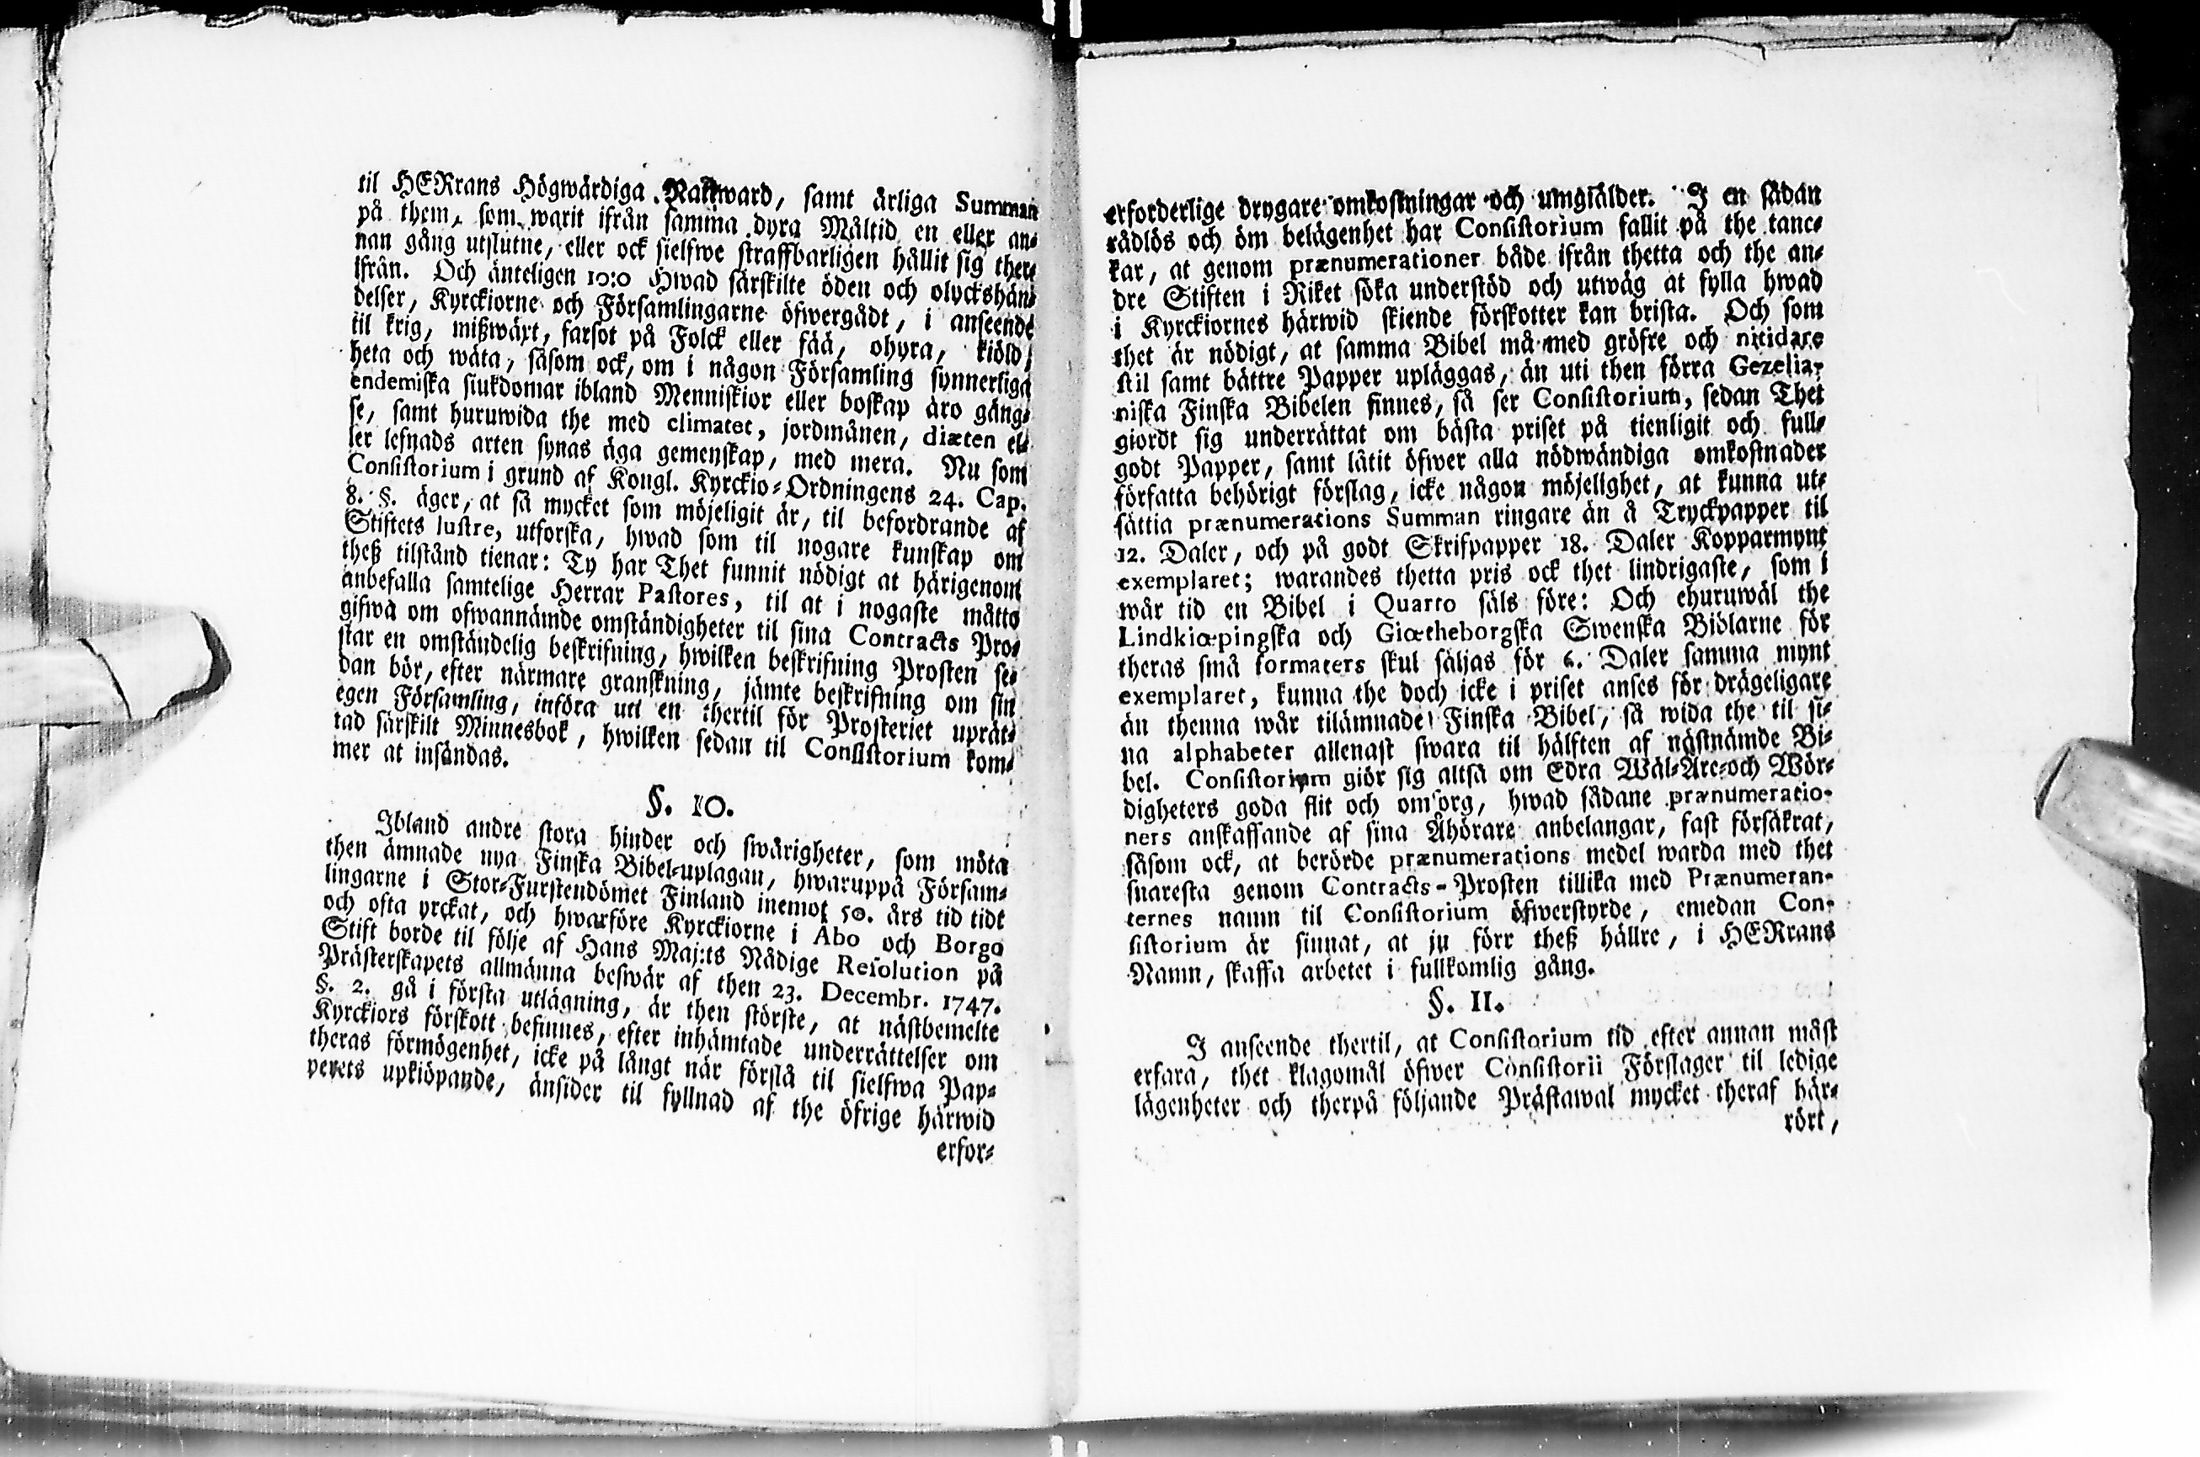 til HERrans Högwärdiga Nattward, samt årliga Summan
på them, som warit ifrån samma dyra Måltid en eller an-
nan gång utslutne, eller ock sielfwe straffbarligen hållit sig ther-
ifrån. Och änteligen 10:o Hwad särskilte öden och olyckshän-
delser, Kyrckiorne och Församlingarne öfwergådt, i anseende
til krig, mißwäxt, farsot på Folck eller fää, ohyra, kiöld,
heta och wäta, såsom ock, om i någon Församling synnerliga
endemiska siukdomar ibland Menniskior eller boskap äro gäng-
se, samt huruwida the med climatet, jordmånen, diæten el-
ler lefnads arten synas äga gemenskap, med mera. Nu som
Consistorium i grund af Kongl. Kyrckio-Ordningens 24. Cap.
8. §. äger, at så mycket som möjeligit är, til befordrande af
Stiftets lustre, utforska, hwad som til nogare kunskap om
theß tilstånd tienar: Ty har Thet funnit nödigt at härigenom
anbefalla samtelige Herrar Pastores, til at i nogaste måtto
gifwa om ofwannämde omständigheter til sina Contracts Pro-
star en omständelig beskrifning, hwilken beskrifning Prosten se-
dan bör, efter närmare granskning, jämte beskrifning om sin
egen Församling, införa uti en thertil för Prosteriet uprät-
tad särskilt Minnesbok, hwilken sedan til Consistorium kom-
mer at insändas.
§. 10.
Ibland andre stora hinder och swårigheter, som möta
then ämnade nya Finska Bibel-uplagan, hwaruppå Försam-
lingarne i Stor-Furstendömet Finland inemot 50. års tid tidt
och ofta yrckat, och hwarföre Kyrckiorne i Åbo och Borgo
Stift borde til följe af Hans Maj:ts Nådige Resolution på
Prästerskapets allmänna beswär af then 23. Decembr. 1747.
§. 2. gå i första utlägning, är then störste, at nästbemelte
Kyrckiors förskott befinnes, efter inhämtade underrättelser om
theras förmögenhet, icke på långt när förslå til sielfwa Pap-
perets upkiöpande, änsider til fyllnad af the öfrige härwid
erfor-
erforderlige drygare omkostningar och umgiälder. I en sådan
rådlös och öm belägenhet har Consistorium fallit på the tanc-
kar, at genom prænumerationer både ifrån thetta och the an-
dre Stiften i Riket söka understöd och utwäg at fylla hwad
i Kyrckiornes härwid skiende förskotter kan brista. Och som
thet är nödigt, at samma Bibel må med gröfre och nitidare
stil samt bättre Papper upläggas, än uti then förra Gezelia-
niska Finska Bibelen finnes, så ser Consistorium, sedan Thet
giordt sig underrättat om bästa priset på tienligit och full-
godt Papper, samt låtit öfwer alla nödwändiga omkostnader
författa behörigt förslag, icke någon möjelighet, at kunna ut-
sättia prænumerations Summan ringare än å Tryckpapper til
12. Daler, och på godt Skrifpapper 18. Daler Kopparmynt
exemplaret; warandes thetta pris ock thet lindrigaste, som i
wår tid en Bibel i Quarto säls före: Och ehuruwäl the
Lindkiœpingska och Giœtheborgska Swenska Biblarne för
theras små formaters skul säljas för 6. Daler samma mynt
exemplaret, kunna the doch icke i priset anses för drägeligare
än thenna wår tilämnade Finska Bibel, så wida the til si-
na alphabeter allenast swara til hälften af nästnämde Bi-
bel. Consistorium giör sig altså om Edra Wäl-Äre-och Wör-
digheters goda flit och omsorg, hwad sådane prænumeratio-
ners anskaffande af sina Åhörare anbelangar, fast försäkrat,
såsom ock, at berörde prænumerations medel warda med thet
snaresta genom Contracts-Prosten tillika med Prænumeran-
ternes namn til Consistorium öfwerstyrde, emedan Con-
sistorium är sinnat, at ju förr theß hällre, i HERrans
Namn, skaffa arbetet i fullkomlig gång.
§. 11.
I anseende thertil, at Consistorium tid efter annan måst
erfara, thet klagomål öfwer Consistorii Förslager til ledige
lägenheter och therpå följande Prästawal mycket theraf här-
rört,